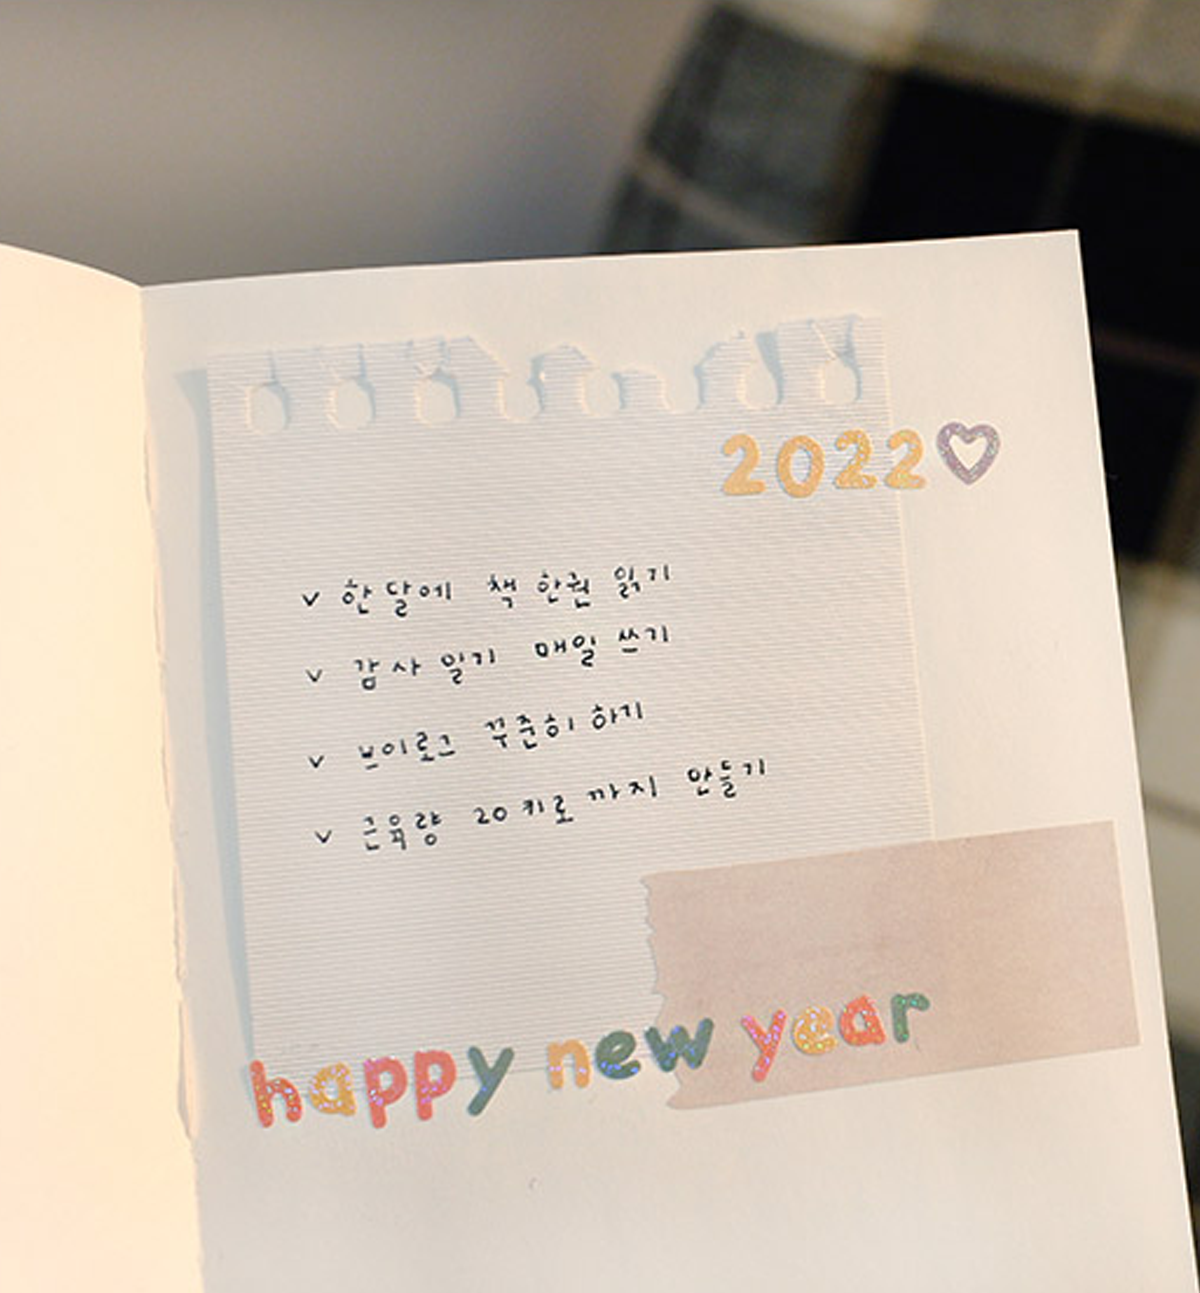 2022♡
v 한달에 책 한권 읽기
v 감사일기 매일 쓰기
v 브이로그 꾸준히 하기
v 근육량 20키로까지 만들기
happy new year